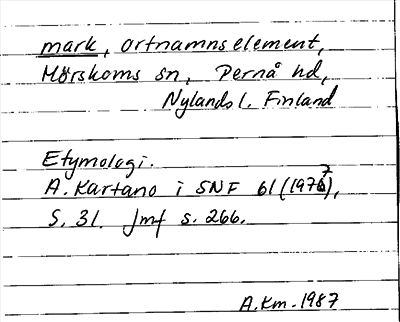 mark, ortnamnselement,
Mörskoms sn, Pernå hd,
Nylands l. Finland
Etymologi.
A. Kartano i SNF 61 (1977),
S. 31. Jmf s. 266.
A.Km. 1987